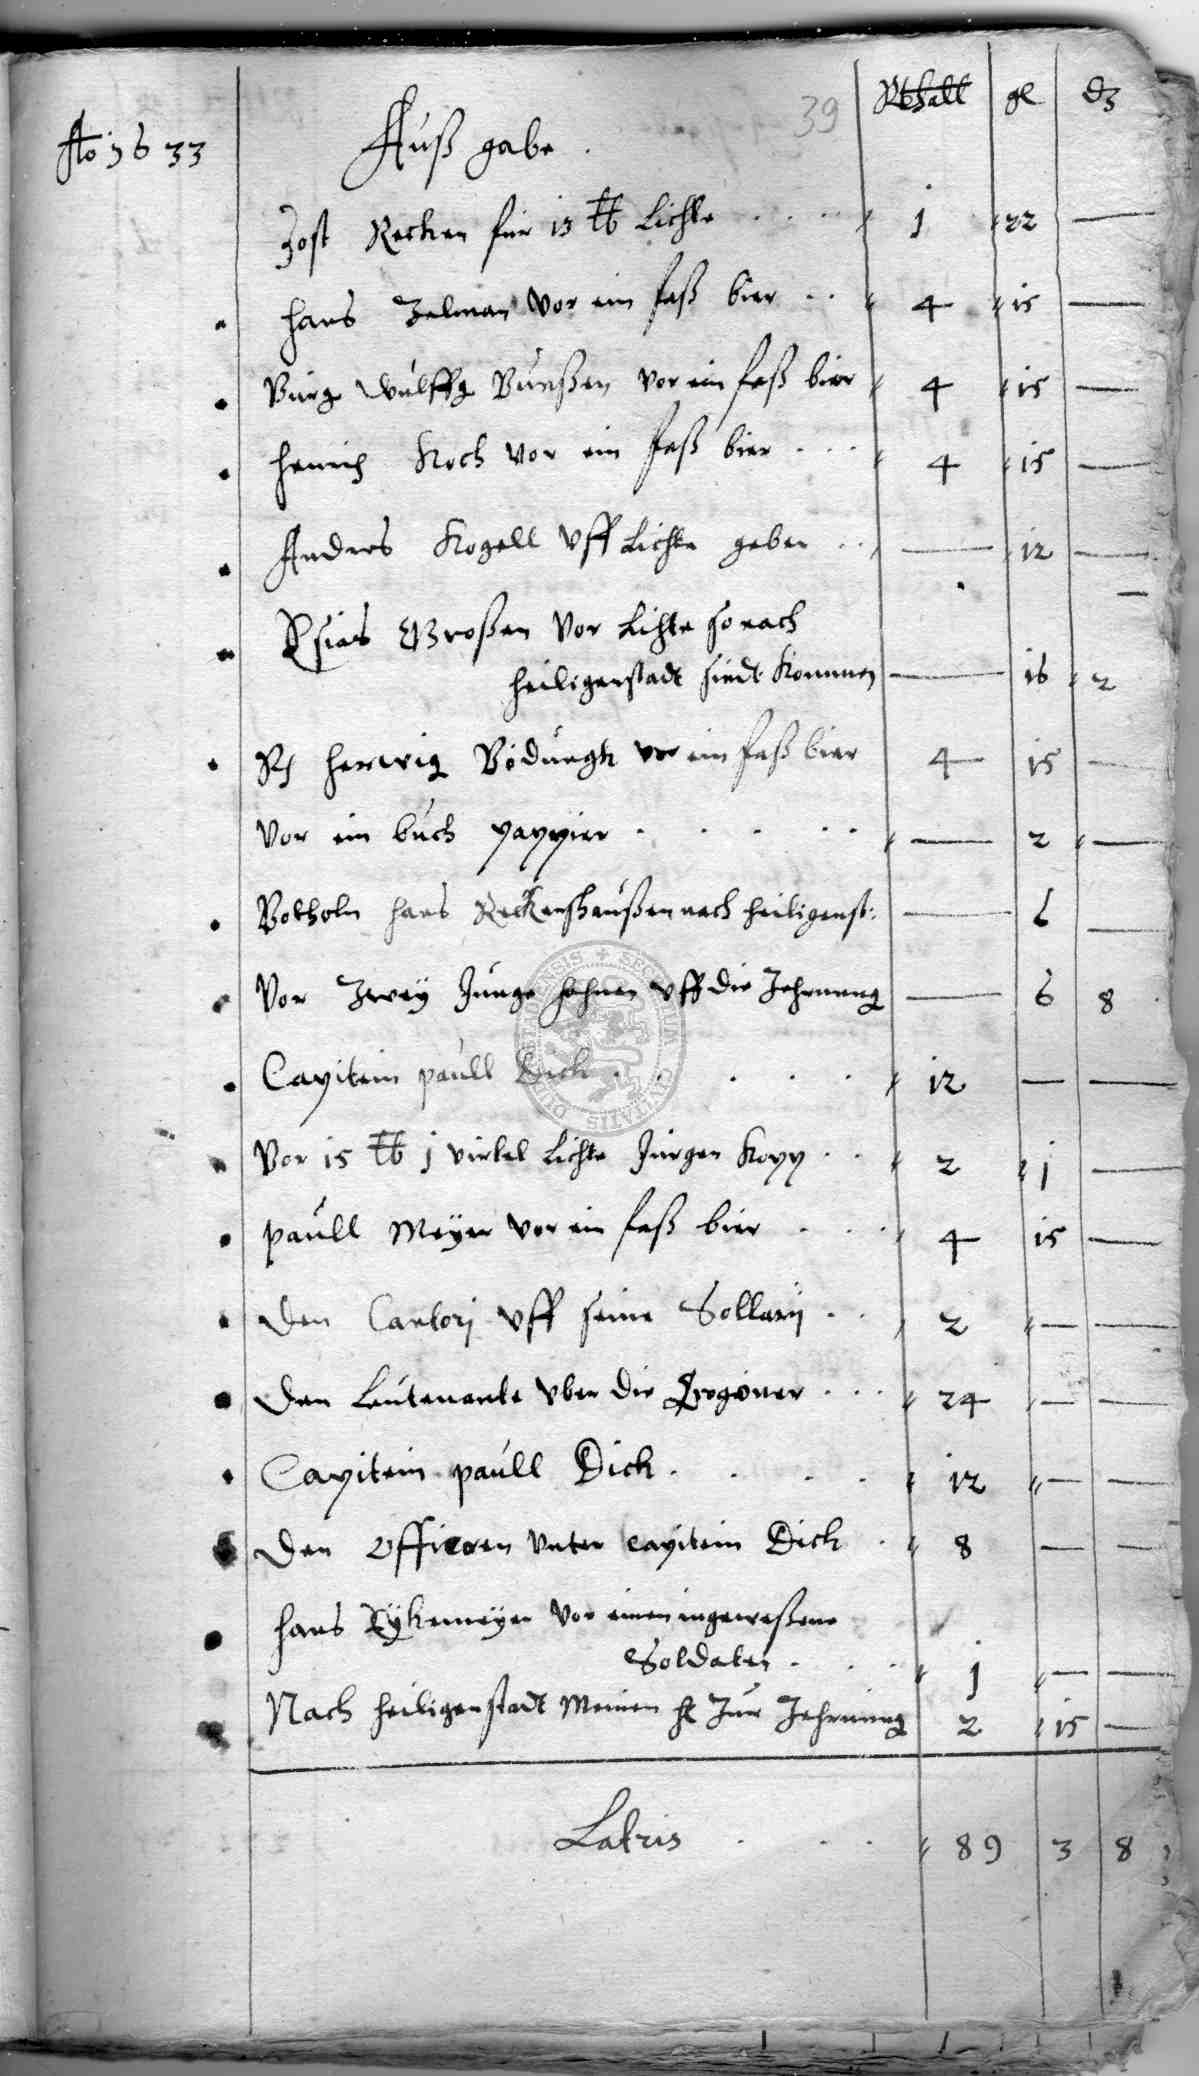 39
Rthall gl d
Ao 1633
Außgabe.
Jost Recken für 13 lb Lichte . . . . 1 22 —
Hans Zelman vor ein faß bier . . 4 15 —
Bürg Wulffg Bunßen vor ein faß bier 4 15 —
Henrich Koch vor ein faß bier . . . 4 15 —
Anders Kogell uff Lichte geben . . — 12 —
Großen vor Lichte so nach
Heiligenstadt sindt kommen — 16 2
Herwig Bodungk vor ein faß bier 4 15 —
Vor ein buch pappier . . . . . — 2 —
Botholn Hans Reckershaußen nach Heiligenst: — 6 —
Vor Zwey Junge hahnen uff die Zehrung — 6 8
Capitein paull Dick . . . . . 12 — —
Vor 15 lb 1 virtel Lichte Jürgen Kopp . . 2 1 —
paull Meyer vor ein faß bier . . . 4 15 —
Den Cantori uff seine Sollarij . . 2 — —
Den Leutenante uber die Dragoner . . . 24 — —
Capitein paull Dick . . . . . 12 — —
Den Officren unter Capitein Dick . 8 — —
Hans Rykemeyer vor einen ingeweßene
Soldaten . . . 1 — —
Nach Heiligenstadt Meinen H Zur Zehrung 2 15 —
Latris . . . 89 3 8